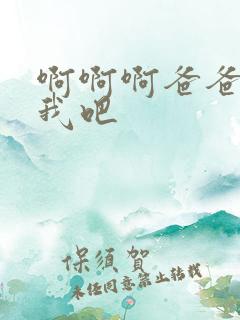 啊啊啊爸爸
我吧
保须贺
未经同意禁止转载